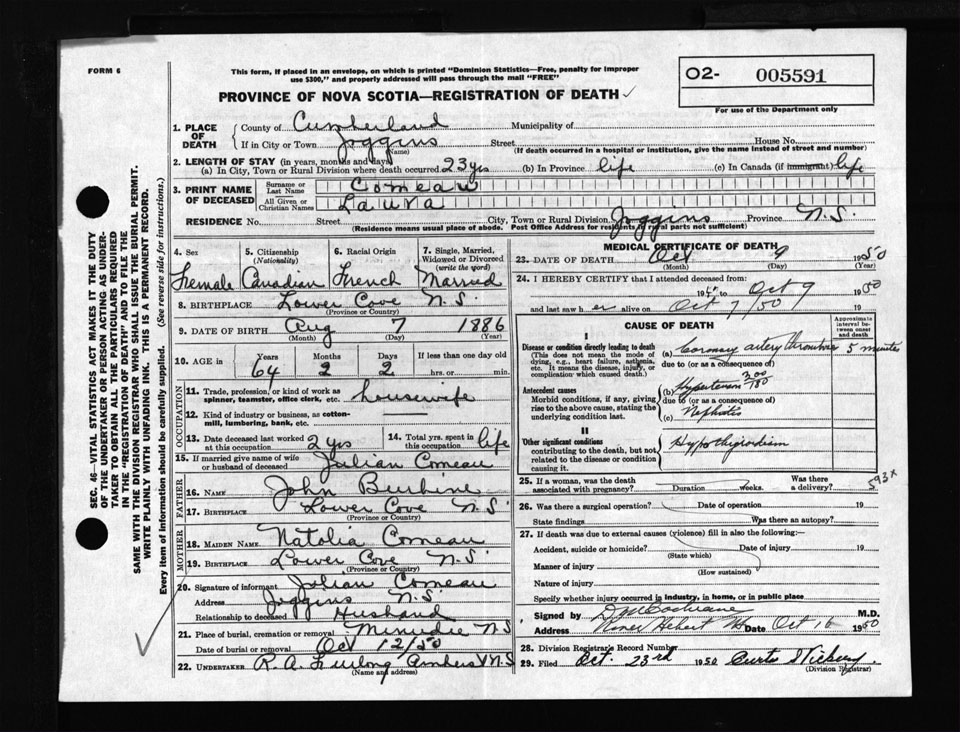 FORM 6
This form, if placed in an envelope, on which is printed "Dominion Statistics—Free, penalty for improper
use $300," and properly addressed will pass through the mail "FREE"
PROVINCE OF NOVA SCOTIA—REGISTRATION OF DEATH ✓
O2- 005591
For use of the Department only
1. PLACE OF DEATH County of Cumberland Municipality of
If in City or Town Joggins Street House No.
(Name) (If death occurred in a hospital or institution, give the name instead of street and number)
2. LENGTH OF STAY (in years, months and days)
(a) In City, Town or Rural Division where death occurred 23 yrs (b) In Province life (c) In Canada (if immigrant) life
3. PRINT NAME OF DECEASED Surname or Last Name Comeau
All Given or Christian Names Laura
RESIDENCE No. Street City, Town or Rural Division Joggins Province N.S.
(Residence means usual place of abode. Post Office Address for residents in rural parts not sufficient)
4. Sex 5. Citizenship (Nationality) 6. Racial Origin 7. Single, Married, Widowed or Divorced (write the word)
Female Canadian French Married
8. BIRTHPLACE Lower Cove N.S.
(Province or Country)
9. DATE OF BIRTH Aug 7 1886
(Month) (Day) (Year)
10. AGE in Years Months Days If less than one day old
64 2 2 hrs. or min.
OCCUPATION
11. Trade, profession, or kind of work as
spinner, teamster, office clerk, etc. housewife
12. Kind of industry or business, as cotton-
mill, lumbering, bank, etc. —
13. Date deceased last worked at this occupation 2 yrs 14. Total yrs. spent in this occupation life
15. If married give name of wife
or husband of deceased Julian Comeau
FATHER
16. NAME John Burbine
17. BIRTHPLACE Lower Cove N.S.
(Province or Country)
MOTHER
18. MAIDEN NAME Natalia Comeau
19. BIRTHPLACE Lower Cove N.S.
(Province or Country)
20. Signature of informant Julian Comeau
Address Joggins N.S.
Relationship to deceased Husband
21. Place of burial, cremation or removal Minudie N.S
Date of burial or removal Oct 12/50
22. UNDERTAKER R.A. Furlong Amherst N.S
(Name and address)
MEDICAL CERTIFICATE OF DEATH
23. DATE OF DEATH Oct 9 1950
(Month) (Day) (Year)
24. I HEREBY CERTIFY that I attended deceased from:
19 to Oct 9 1950
and last saw her alive on Oct 7/50 19
CAUSE OF DEATH
Approximate interval between onset and death
I
Disease or condition directly leading to death (a) Coronary artery thrombus 5 minutes
(This does not mean the mode of dying, e.g., heart failure, asthenia, etc. It means the disease, injury, or complication which caused death.) due to (or as a consequence of)
Antecedent causes (b) Hypertension 200/180
Morbid conditions, if any, giving rise to the above cause, stating the underlying condition last. due to (or as a consequence of)
(c) Nephritis
II
Other significant conditions Hypothyroidism
contributing to the death, but not related to the disease or condition causing it.
593x
25. If a woman, was the death associated with pregnancy? Duration weeks. Was there a delivery?
26. Was there a surgical operation? Date of operation 19
State findings Was there an autopsy?
27. If death was due to external causes (violence) fill in also the following:—
Accident, suicide or homicide? Date of injury 19
(State which)
Manner of injury
(How sustained)
Nature of injury
Specify whether injury occurred in industry, in home, or in public place
Signed by D M Cochrane M.D.
Address River Hebert NS Date Oct 16 1950
28. Division Registrar's Record Number
29. Filed Oct. 23rd 1950 Curts
(Division Registrar)
SEC. 46—VITAL STATISTICS ACT MAKES IT THE DUTY
OF THE UNDERTAKER OR PERSON ACTING AS UNDER-
TAKER TO OBTAIN ALL THE PARTICULARS REQUIRED
IN THE "REGISTRATION OF DEATH" AND TO FILE THE
SAME WITH THE DIVISION REGISTRAR WHO SHALL ISSUE THE BURIAL PERMIT.
WRITE PLAINLY WITH UNFADING INK. THIS IS A PERMANENT RECORD.
Every item of information should be carefully supplied. (See reverse side for instructions.)